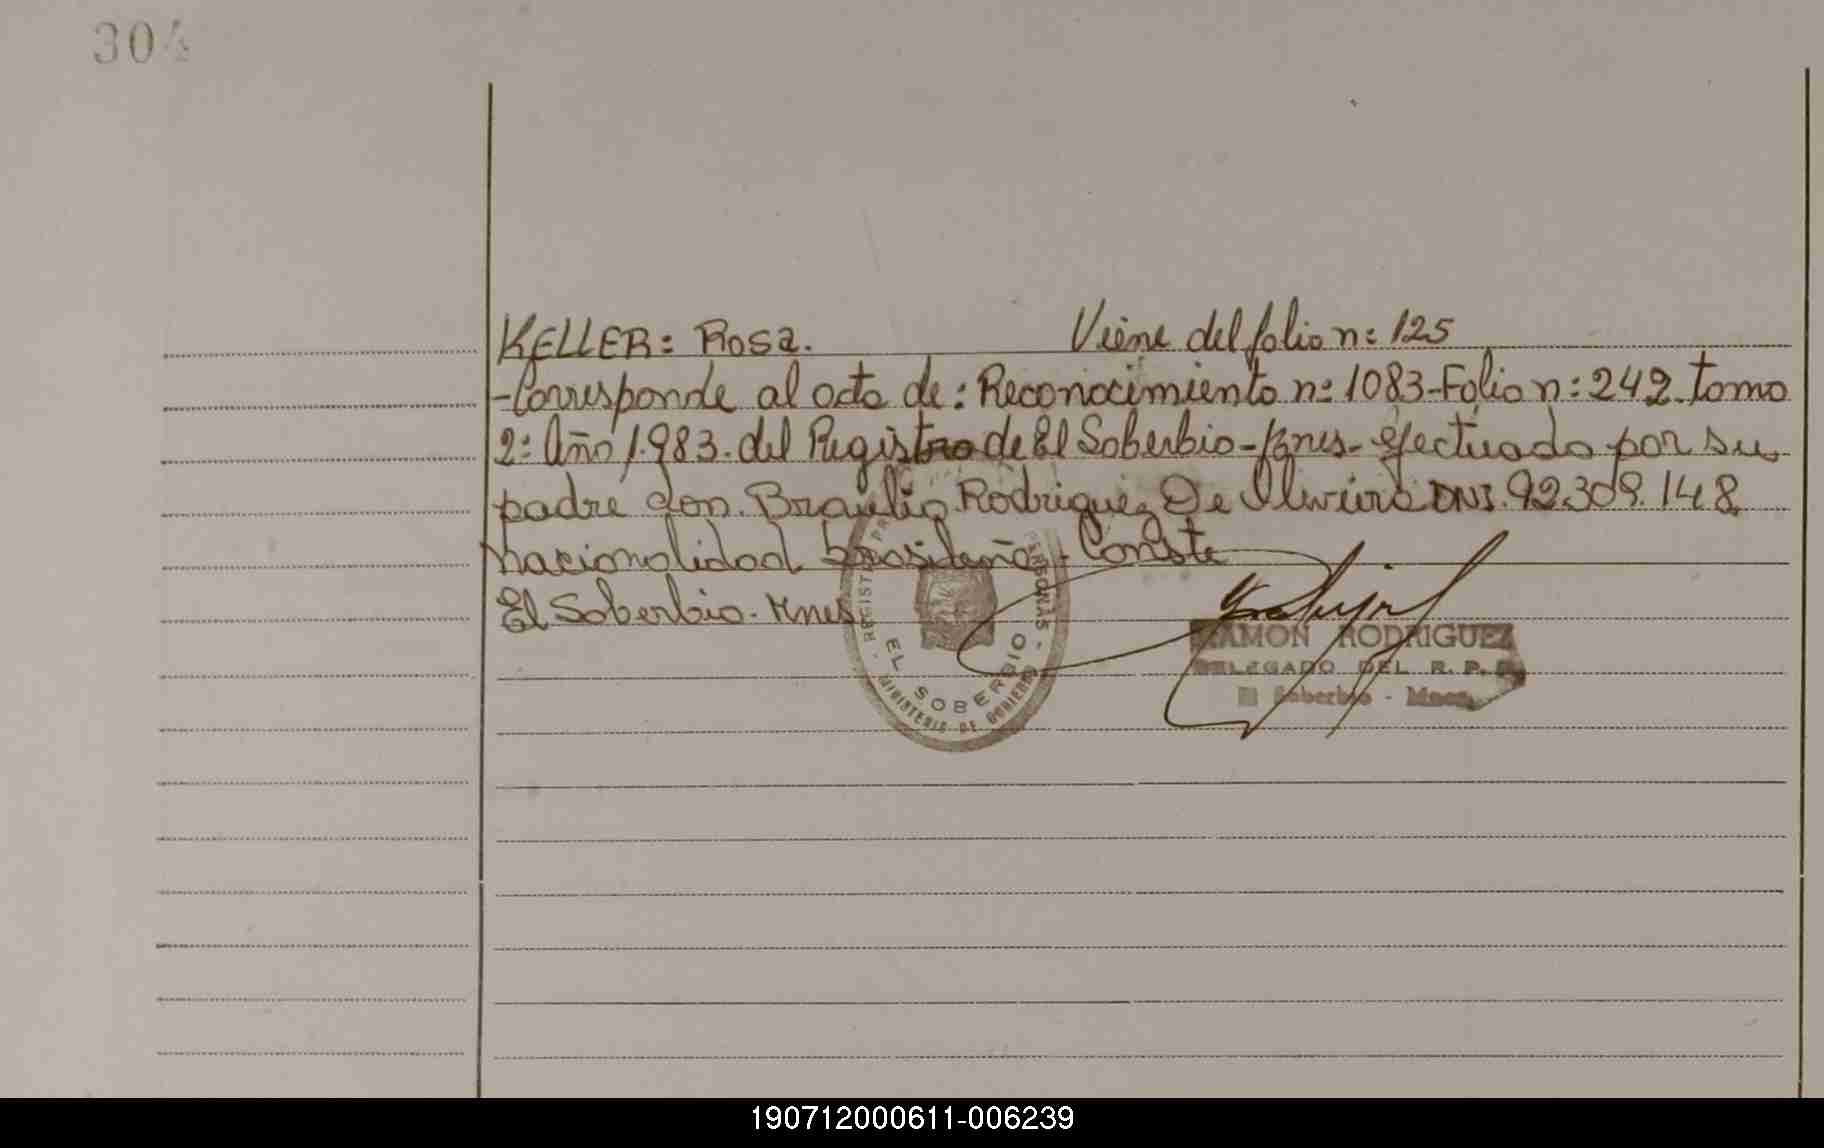 304
KELLER: Rosa. Viene del folio n: 125
-Corresponde al acta de: Reconocimiento n: 1083-Folio n: 242-tomo
2: Año 1.983. del Registro de El Soberbio-Mnes- efectuado por su
padre don. Braulio Rodriguez De Oliveira DNI. 92.309.148
nacionalidad brasileña - Conste
El Soberbio-Mnes
EL SOBERBIO
MINISTERIO DE GOBIERNO
RAMON RODRIGUEZ
DELEGADO DEL R. P.
El Soberbio - Mnes
190712000611-006239